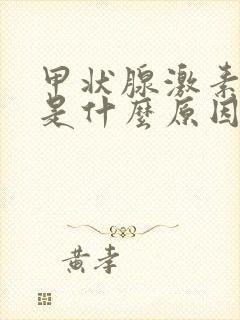 甲状腺激素
是什麼原因
黄孝